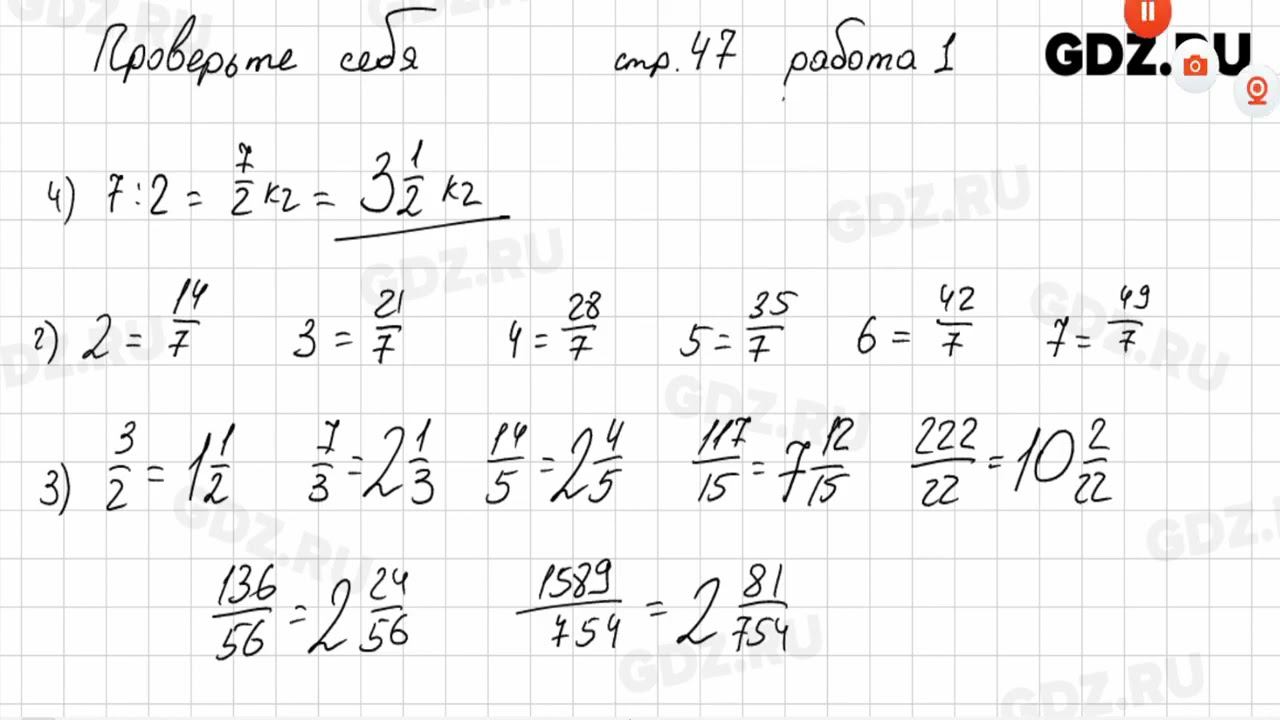 Проверьте себя стр. 47 работа 1 GDZ.RU
4) 7:2 = 7/2 кг = 3 1/2 кг
2) 2 = 14/7 3 = 21/7 4 = 28/7 5 = 35/7 6 = 42/7 7 = 49/7
3) 3/2 = 1 1/2 7/3 = 2 1/3 14/5 = 2 4/5 117/15 = 7 12/15 222/22 = 10 2/22
136/56 = 2 24/56 1589/754 = 2 81/754